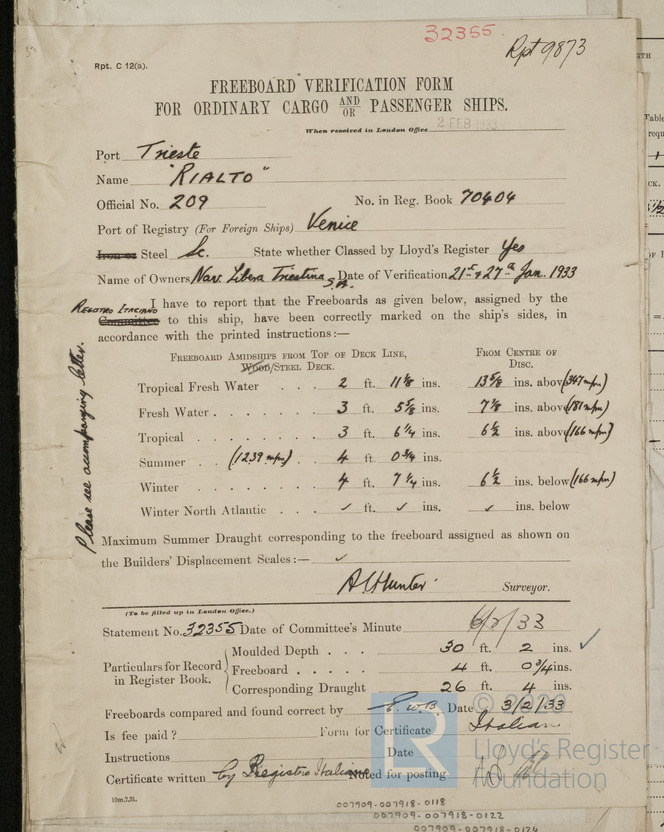 32355
Rpt 9873
Rpt. C 12(a).
FREEBOARD VERIFICATION FORM
FOR ORDINARY CARGO AND OR PASSENGER SHIPS.
When received in London Office 2 FEB 1933
Port Trieste
Name "RIALTO"
Official No. 209 No. in Reg. Book 70404
Port of Registry (For Foreign Ships) Venice
Iron or Steel Sc. State whether Classed by Lloyd's Register Yes
Name of Owners Nav. Libera Triestina S.A. Date of Verification 21st & 27th Jan. 1933
I have to report that the Freeboards as given below, assigned by the
REGISTRO ITALIANO Committee to this ship, have been correctly marked on the ship's sides, in
accordance with the printed instructions:—
Please see accompanying letter.
FREEBOARD AMIDSHIPS FROM TOP OF DECK LINE, FROM CENTRE OF
WOOD/STEEL DECK. DISC.
Tropical Fresh Water . . . 2 ft. 11 1/8 ins. 13 5/8 ins. above (347 m/m)
Fresh Water . . . . . . 3 ft. 5 5/8 ins. 7 1/8 ins. above (181 m/m)
Tropical . . . . . . . 3 ft. 6 1/4 ins. 6 1/2 ins. above (166 m/m)
Summer . . (1239 m/m) . . 4 ft. 0 3/4 ins.
Winter . . . . . . . 4 ft. 7 1/4 ins. 6 1/2 ins. below (166 m/m)
Winter North Atlantic . . . ✓ ft. ✓ ins. ✓ ins. below
Maximum Summer Draught corresponding to the freeboard assigned as shown on
the Builders' Displacement Scales:— ✓
A C Hunter Surveyor.
(To be filled up in London Office.)
Statement No. 32355 Date of Committee's Minute 6/2/33
Particulars for Record in Register Book.
Moulded Depth . . . 30 ft. 2 ins. ✓
Freeboard . . . . . 4 ft. 0 3/4 ins.
Corresponding Draught 26 ft. 4 ins.
Freeboards compared and found correct by E.W.B. Date 3/2/33
Is fee paid? Form for Certificate Italian
Instructions Date
Certificate written by Registro Italiano Noted for posting
10m.7.31.
© 2020
Lloyd's Register
Foundation
007909-007918-0118
007909-007918-0122
007909-007918-0124